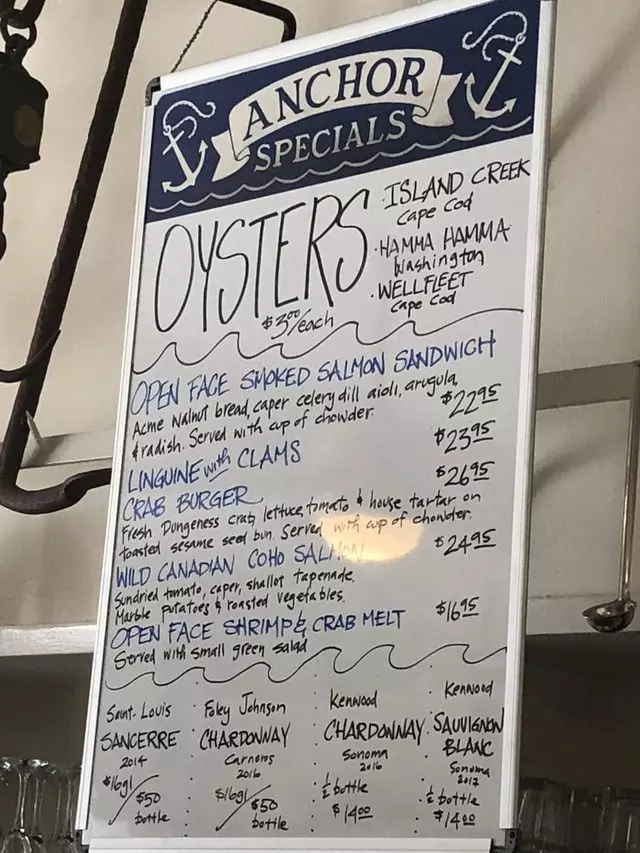 ANCHOR
SPECIALS
OYSTERS
$3.00/each
· ISLAND CREEK
Cape Cod
· HAMMA HAMMA
Washington
· WELLFLEET
Cape Cod
OPEN FACE SMOKED SALMON SANDWICH
Acme Walnut bread, caper celery dill aioli, arugula,
& radish. Served with cup of chowder. $22.95
LINGUINE with CLAMS $23.95
CRAB BURGER $26.95
Fresh Dungeness crab, lettuce, tomato & house tartar on
toasted sesame seed bun. Served with cup of chowder.
WILD CANADIAN COHO SALMON $24.95
Sundried tomato, caper, shallot tapenade.
Marble potatoes & roasted vegetables.
OPEN FACE SHRIMP & CRAB MELT $16.95
Served with small green salad
Saint-Louis
SANCERRE
2014
$16gl/$50
bottle
Foley Johnson
CHARDONNAY
Carneros
2016
$16gl/$50
bottle
Kenwood
CHARDONNAY
Sonoma
2016
½ bottle
$14.00
Kenwood
SAUVIGNON
BLANC
Sonoma
2017
½ bottle
$14.00